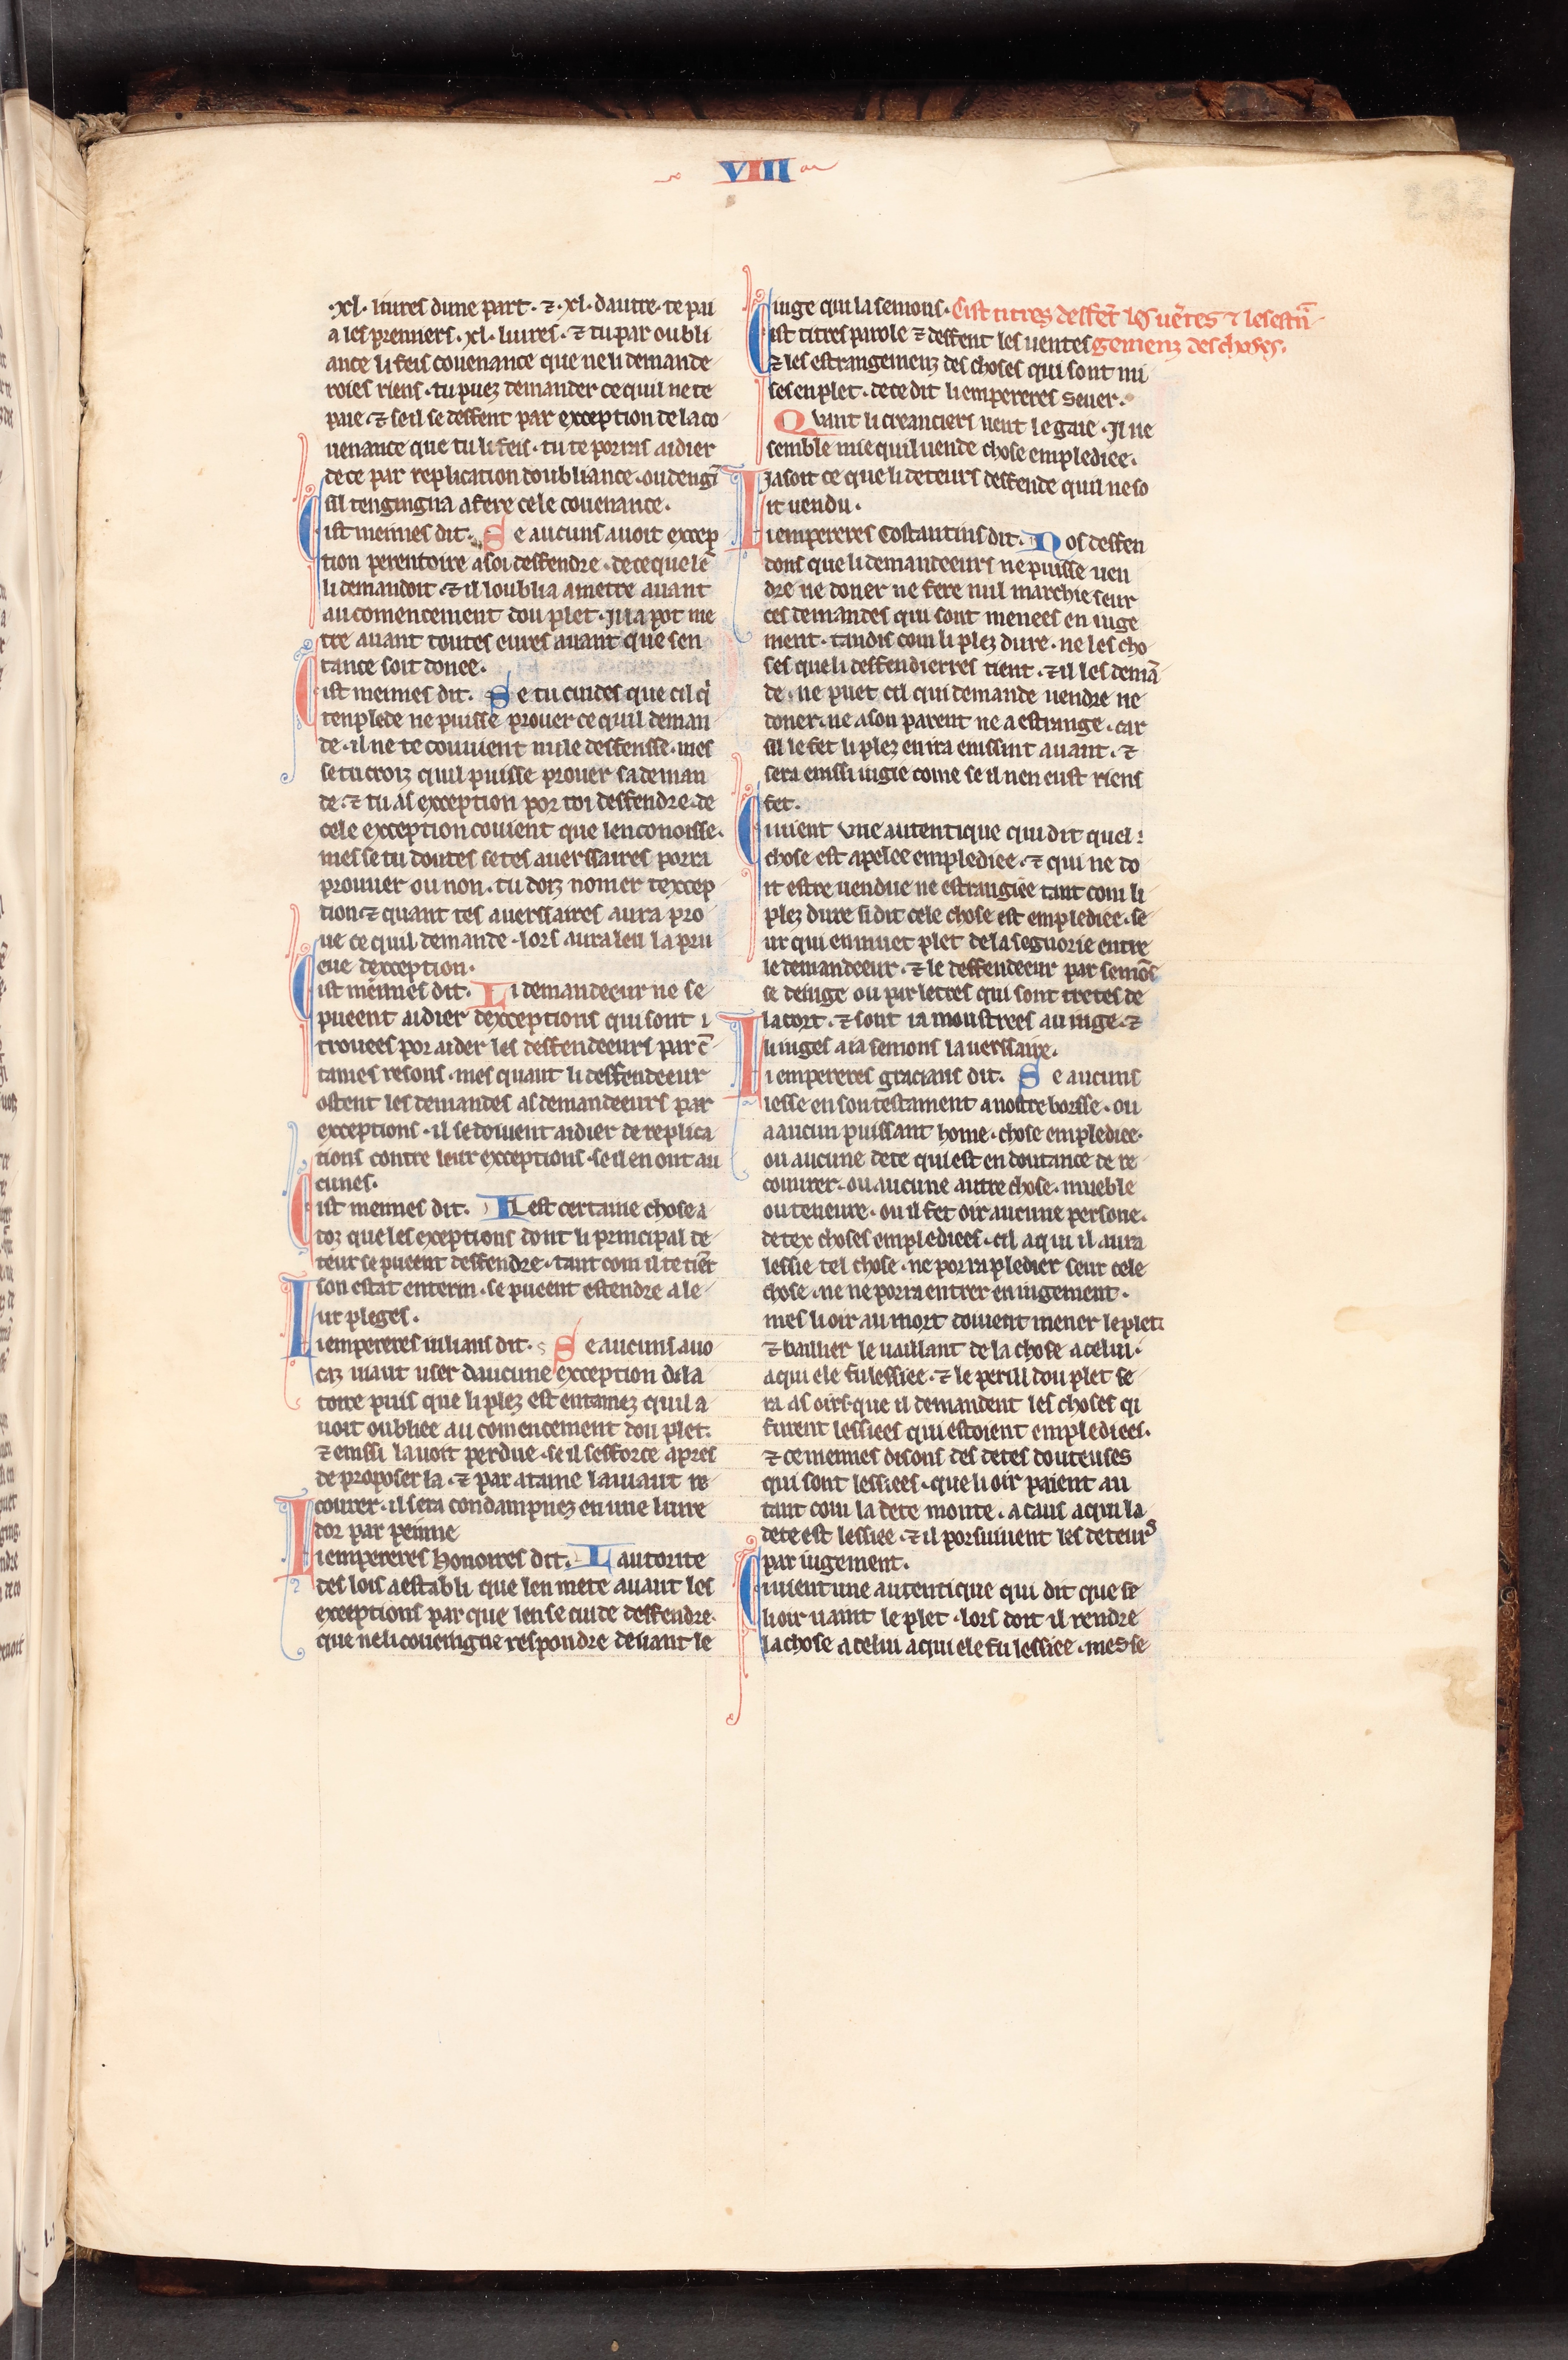 VIII
232
·xl· liures dune part· ⁊ ·xl· dautre· te pai
a les premiers ·xl· liures· ⁊ tu par oubli
ance li feis couenance que ne li demande
roies riens· tu puez demander ce quil ne te
paie· ⁊ se il se deffent par exception de la co
uenance que tu li feis· tu te porras aidier
de ce par replication doubliance· ou dengĩ
sil tengingna a fere cele couenance·
Cist meimes dit· Se aucuns auoit excep
tion perentoire a soi deffendre· de ce que lẽ
li demandoit· ⁊ il loublia a metre auant
au comencement dou plet· Il la pot me
tre auant toutes eures auant que sen
tance soit donee·
Cist meimes dit· Se tu cuides que cil q̇
tenplede ne puisse prouer ce quil deman
de· il ne te couuient nule deffensse· mes
se tu croiz quil puisse prouer sa deman
de· ⁊ tu as exception por toi deffendre· de
cele exception couient que len conoisse·
mes se tu doutes se tes auerssaires porra
prouuer ou non· tu doiz nomer texcep
tion· ⁊ quant tes auerssaires aura pro
ue ce quil demande· lors aura leu la pru
eue dexception·
Cist meimes dit· Li demandeeur ne se
pueent aidier dexceptions qui sont t
trouees por aider les deffendeeurs par c̃
taines resons· mes quant li deffendeeur
ostent les demandes as demandeeurs par
exceptions· il se doiuent aidier de replica
tions contre leur exceptions· se il en ont au
cunes·
Cist meimes dit· Il est certaine chose a
toz que les exceptions dont li principal de
teur se pueent deffendre· tant com il te tiẽt
son estat enterin· se pueent estendre a le
ur pleges·
Li empereres iulians dit· Se aucuns auo
caz uiaut user daucune exception dila
toire puis que li plez est entamez quil a
uoit oubliee au comencement dou plet·
⁊ einssi lauoit perdue· se il sefforce apres
de proposer la· ⁊ par ataine la uiaut re
courer· il sera condampnez en une liure
dor par peinne
Li empereres honoires dit· Lautorite
des lois a establi que len mete auant les
exceptions par que len se cuide deffendre·
que ne li couiengne respondre deuant le
iuge qui la semons· Cist titres deffẽt les uẽtes ⁊ les estrã
Cist titres parole ⁊ deffent les uentes gemenz des choses·
⁊ les estrangemenz des choses qui sont mi
ses en plet· de ce dit li empereres Seuer·
Quant li creanciers uent le gaie· Il ne
semble mie quil uende chose emplediee·
Ja soit ce que li deteurs deffende quil ne so
it uendu·
Li empereres Costantins dit· Nos deffen
dons que li demandeeurs ne puisse uen
dre ne doner ne fere nul marchie seur
ces demandes qui sont menees en iuge
ment· tandis com li plez dure· ne les cho
ses que li deffendierres tient· ⁊ il les demã
de· ne puet cil qui demande uendre ne
doner· ne a son parent ne a estrange· car
sil le fet li plez en ira einssint auant· ⁊
sera einssi iugie come se il nen eust riens
fet·
Ci uient une autentique qui dit quel
chose est apelee emplediee· ⁊ qui ne do
it estre uendue ne estrangiee tant com li
plez dure si dit cele chose est emplediee· se
ur qui en muet plet de la segnorie entre
le demandeeur· ⁊ le deffendeeur par semõ
se de iuge ou par lettres qui sont tretes de
la cort· ⁊ sont ia monstrees au iuge· ⁊
li iuges a ia semons lauerssaire·
Li empereres gracians dit· Se aucuns
lesse en son testament a nostre borsse· ou
a aucun puissant home· chose emplediee·
ou aucune dete qui est en doutance de re
courer· ou aucune autre chose· mueble
ou teneure· ou il fet oir aucune persone·
de tex choses emplediees· cil a qui il aura
lessie tel chose· ne porra pledier seur cele
chose· ne ne porra entrer en iugement·
mes li oir au mort doiuent mener le plet·
⁊ baillier le uaillant de la chose a celui·
a qui ele fu lessiee· ⁊ le peril dou plet se
ra as oirs· que il demandent les choses q̇
furent lessiees qui estoient emplediees·
⁊ ce meimes disons des detes douteuses
qui sont lessiees· que li oir paient au
tant com la dete monte· a caus a qui la
dete est lessiee· ⁊ il porsuiuent les deteurs
par iugement·
Ci uient une autentique qui dit que se
li oir uaint le plet· lors doit il rendre
la chose a celui a qui ele fu lessiee· mes se